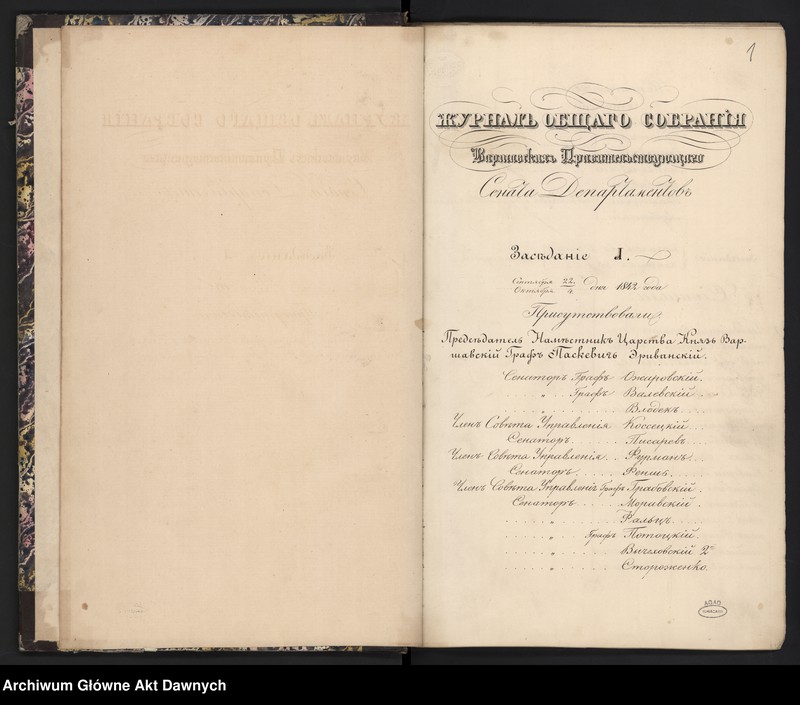 1
ЖУРНАЛЪ ОБЩАГО СОБРАНІЯ
Варшавскихъ Правительствующаго
Сената Департаментовъ
Засѣданіе I.
Сентября 22. / Октября 4. дня 1842 года
Присутствовали
Предсѣдатель Намѣстникъ Царства Князь Вар-
шавскій Графъ Паскевичъ Эриванскій.
Сенаторъ Графъ Ожаровскій.
„ Графъ Валевскій
„ Влодекъ
Членъ Совѣта Управленія Коссецкій
Сенаторъ Писаревъ
Членъ Совѣта Управленія Фурманъ
Сенаторъ
Членъ Совѣта Управленія Графъ Грабовскій.
Сенаторъ Моравскій
„ Фальцъ
„ Графъ Потоцкій
„ 2й
„ Стороженко.
AGAD
WARSZAWA
Archiwum Główne Akt Dawnych